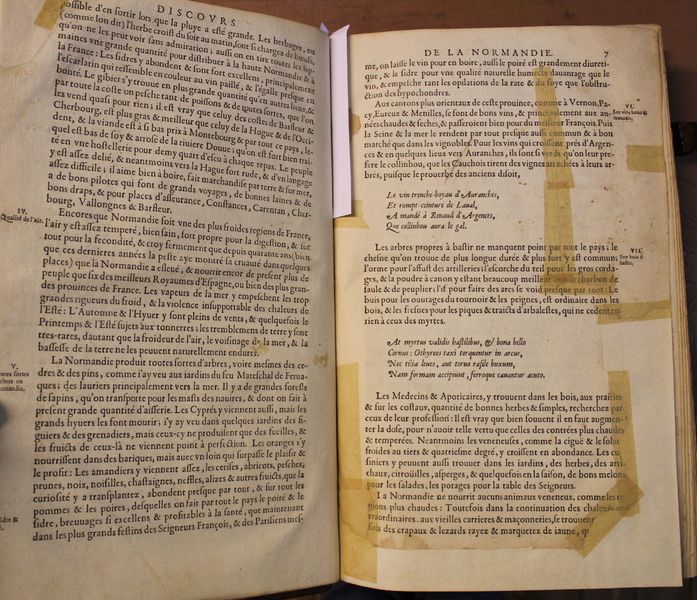 DISCOVRS
possible d'en sortir lors que la pluye a esté grande. Les herbages, ou
(comme lon dit) l'herbe croist du soir au matin, sont si chargez de bœufs,
qu'on ne les peut voir sans admiration; aussi on tire toutes les sep-
maines vne grande quantité pour distribuer à la haute Normandie & à
la France: Les sidres y abondent & sont fort excellens, principalement
l'escarlatin qui ressemble en couleur au vin paillé, & l'égalle presque en
bonté. Le gibier s'y trouue en plus grande quantité qu'en autres lieux, &
par toute la coste on pesche tant de poissons & de toutes sortes, que l'on
les vend quasi pour rien; il est vray que celuy des costes de Barfleur &
Cherbourg, est plus gras & meilleur que celuy de la Hogue & de l'Occi-
dent, & la viande est à si bas prix à Montebourg & par tout ce pays, le-
quel est bas de soy & arrosé de la riuiere Douue; qu'on est fort bien trai-
té en vne hostellerie pour demy quart d'escu à chaque repas. Le peuple
y est assez delié, & neantmoins vers la Hague fort rude, & d'vn langage
assez difficile; il aime bien à boire, fait marchandise par terre & sur mer,
a de bons pilotes qui font de grands voyages, de bonnes laines & de
bons draps, & pour places d'asseurance, Constances, Carentan, Cher-
bourg, Vallongnes & Barfleur.
IV.
Qualité de l'air.
Encores que Normandie soit vne des plus froides regions de France,
l'air y est assez temperé, bien sain, fort propre pour la digestion, & sur
tout pour la fecondité, & croy fermement que depuis quarante ans (bien
que ces dernieres années la peste aye monstré sa cruauté dans quelques
places) que la Normandie a esleué, & nourrit encor de present plus de
peuple que six des meilleurs Royaumes d'Espagne, ou bien des plus gran-
des prouinces de France. Les vapeurs de la mer y empeschent les trop
grandes rigueurs du froid, & la violence insupportable des chaleurs de
l'Esté: L'Automne & l'Hyuer y sont pleins de vents, & quelquefois le
Printemps & l'Esté sujets aux tonnerres; les tremblemens de terre y sont
tres-rares, dautant que la froideur de l'air, le voisinage de la mer, & la
bassesse de la terre ne les peuuent naturellement endurer.
V.
La Normandie produit toutes sortes d'arbres, voire mesmes des ce-
dres & des pins, comme i'ay veu aux iardins du feu Mareschal de Ferua-
ques; des lauriers principalement vers la mer. Il y a de grandes forests
de sapins, qu'on transporte pour les masts des nauires, & dont on fait à
present grande quantité d'aisserie. Les Cyprés y viennent aussi, mais les
grands hyuers les font mourir; i'y ay veu dans quelques iardins des fi-
guiers & des grenadiers, mais ceux-cy ne produisent que des fueilles, &
les fruicts de ceux-là ne viennent point à perfection. Les oranges s'y
nourrissent dans des bariques, mais auec vn soin qui surpasse le plaisir &
le profit: Les amandiers y viennent assez, les cerises, abricots, pesches,
prunes, noix, noisilles, chastaignes, neffles, alizes & autres fruicts, que la
curiosité y a transplantez, abondent presque par tout, & sur tout les
pommes & les poires, desquelles on fait par tout le pays le poiré & le
sidre, breuuages si excellens & profitables à la santé, que maintenant
dans les plus grands festins des Seigneurs François, & des Parisiens mes-
DE LA NORMANDIE. 7
me, on laisse le vin pour en boire, aussi le poiré est grandement diureti-
que, & le sidre pour vne qualité naturelle humecte dauantage que le
vin, & empesche tant les opilations de la rate & du foye que l'obstru-
ction des hypochondres.
VI.
Ses vins bons &
mauuais.
Aux cantons plus orientaux de ceste prouince, comme à Vernon, Pa-
cy, Eureux & Menilles, se font de bons vins, & principalement aux an-
nées chaudes & seches, & passeroient bien pour du meilleur François. Puis
la Seine & la mer le rendent par tout presque aussi commun & à bon
marché que dans les vignobles. Pour les vins qui croissent prés d'Argen-
ces & en quelques lieux vers Auranches, ils sont si verds qu'on leur pre-
fere le collinhou, que les Cauchois tirent des vignes attachées à leurs ar-
bres, puisque le prouerbe des anciens disoit,
Le vin trenche-boyau d'Auranches,
Et rompt-ceinture de Laual,
A mandé à Renaud d'Argences,
Que collinhou aura le gal.
VII.
Son bois à
bastir.
Les arbres propres à bastir ne manquent point par tout le pays; le
chesne qu'on trouue de plus longue durée & plus fort y est commun;
l'orme pour l'affust des artilleries; il escorche du teil pour les gros corda-
ges, & la poudre à canon y estant beaucoup meilleure que de charbon de
saule & de peupliers; l'if pour faire des arcs se void presque par tout: Le
buis pour les ouurages du tournoir & les peignes, est ordinaire dans les
bois, & les fresnes pour les piques & traicts d'arbalestes, qui ne cedent en
rien à ceux des myrtes.
At myrtus validis hastilibus, & bona bello
Cornus: Othyreos taxi torquentur in arcus,
Nec tiliæ leues, aut torno rasile buxum,
Nam formam accipiunt, ferroque cauantur acuto.
Les Medecins & Apoticaires, y trouuent dans les bois, aux prairies
& sur les costaux, quantité de bonnes herbes & simples, recherchez par
ceux de leur profession: Il est vray que bien souuent il en faut augmen-
ter la dose, pour n'auoir telle vertu que celles des contrées plus chaudes
& temperées. Neantmoins les veneneuses, comme la ciguë & le solat
froides au tiers & quatriesme degré, y croissent en abondance. Les cui-
siniers y peuuent aussi trouuer dans les iardins, des herbes, des arti-
chaux, citroüilles, asperges, & quelquefois en la saison, de bons melons
pour les salades, les potages pour la table des Seigneurs.
La Normandie ne nourrit aucuns animaux veneneux, comme les re-
gions plus chaudes: Toutefois dans la continuation des chaleurs ex-
traordinaires, aux vieilles carrieres & maçonneries, se trouuent
fois des crapaux & lezards rayez & marquetez de iaune, q